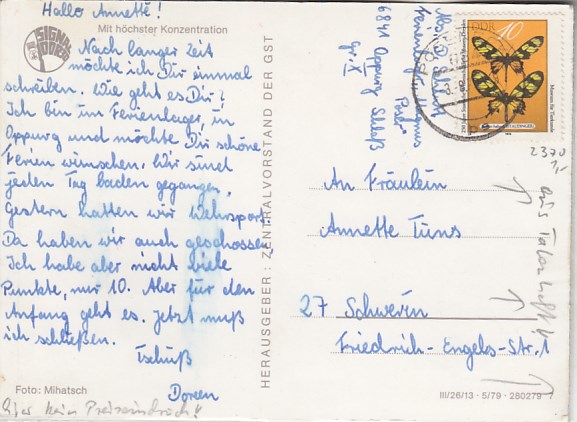 Hallo Annette!
Mit höchster Konzentration
Nach langer Zeit
möchte ich Dir einmal
schreiben. Wie geht es Dir?
Ich bin im Ferienlager, in
Oppurg und möchte Dir schöne
Ferien wünschen. Wir sind
jeden Tag baden gegangen.
Gestern hatten wir Wehrsport.
Da haben wir auch geschossen.
Ich habe aber nicht viele
Punkte, nur 10. Aber für den
Anfang geht es. Jetzt muß
ich schließen.
Tschüß
Doreen
Foto: Mihatsch
Hier kein Preiseindruck!
HERAUSGEBER: ZENTRALVORSTAND DER GST
Magnus
Poser"
6841 Oppurg Schloß
Gr. X
DDR
10
Museum für Tierkunde
2370
An Fräulein
Annette Tuns
27 Schwerin
Friedrich-Engels-Str. 1
aus
III/26/13 · 5/79 · 280279